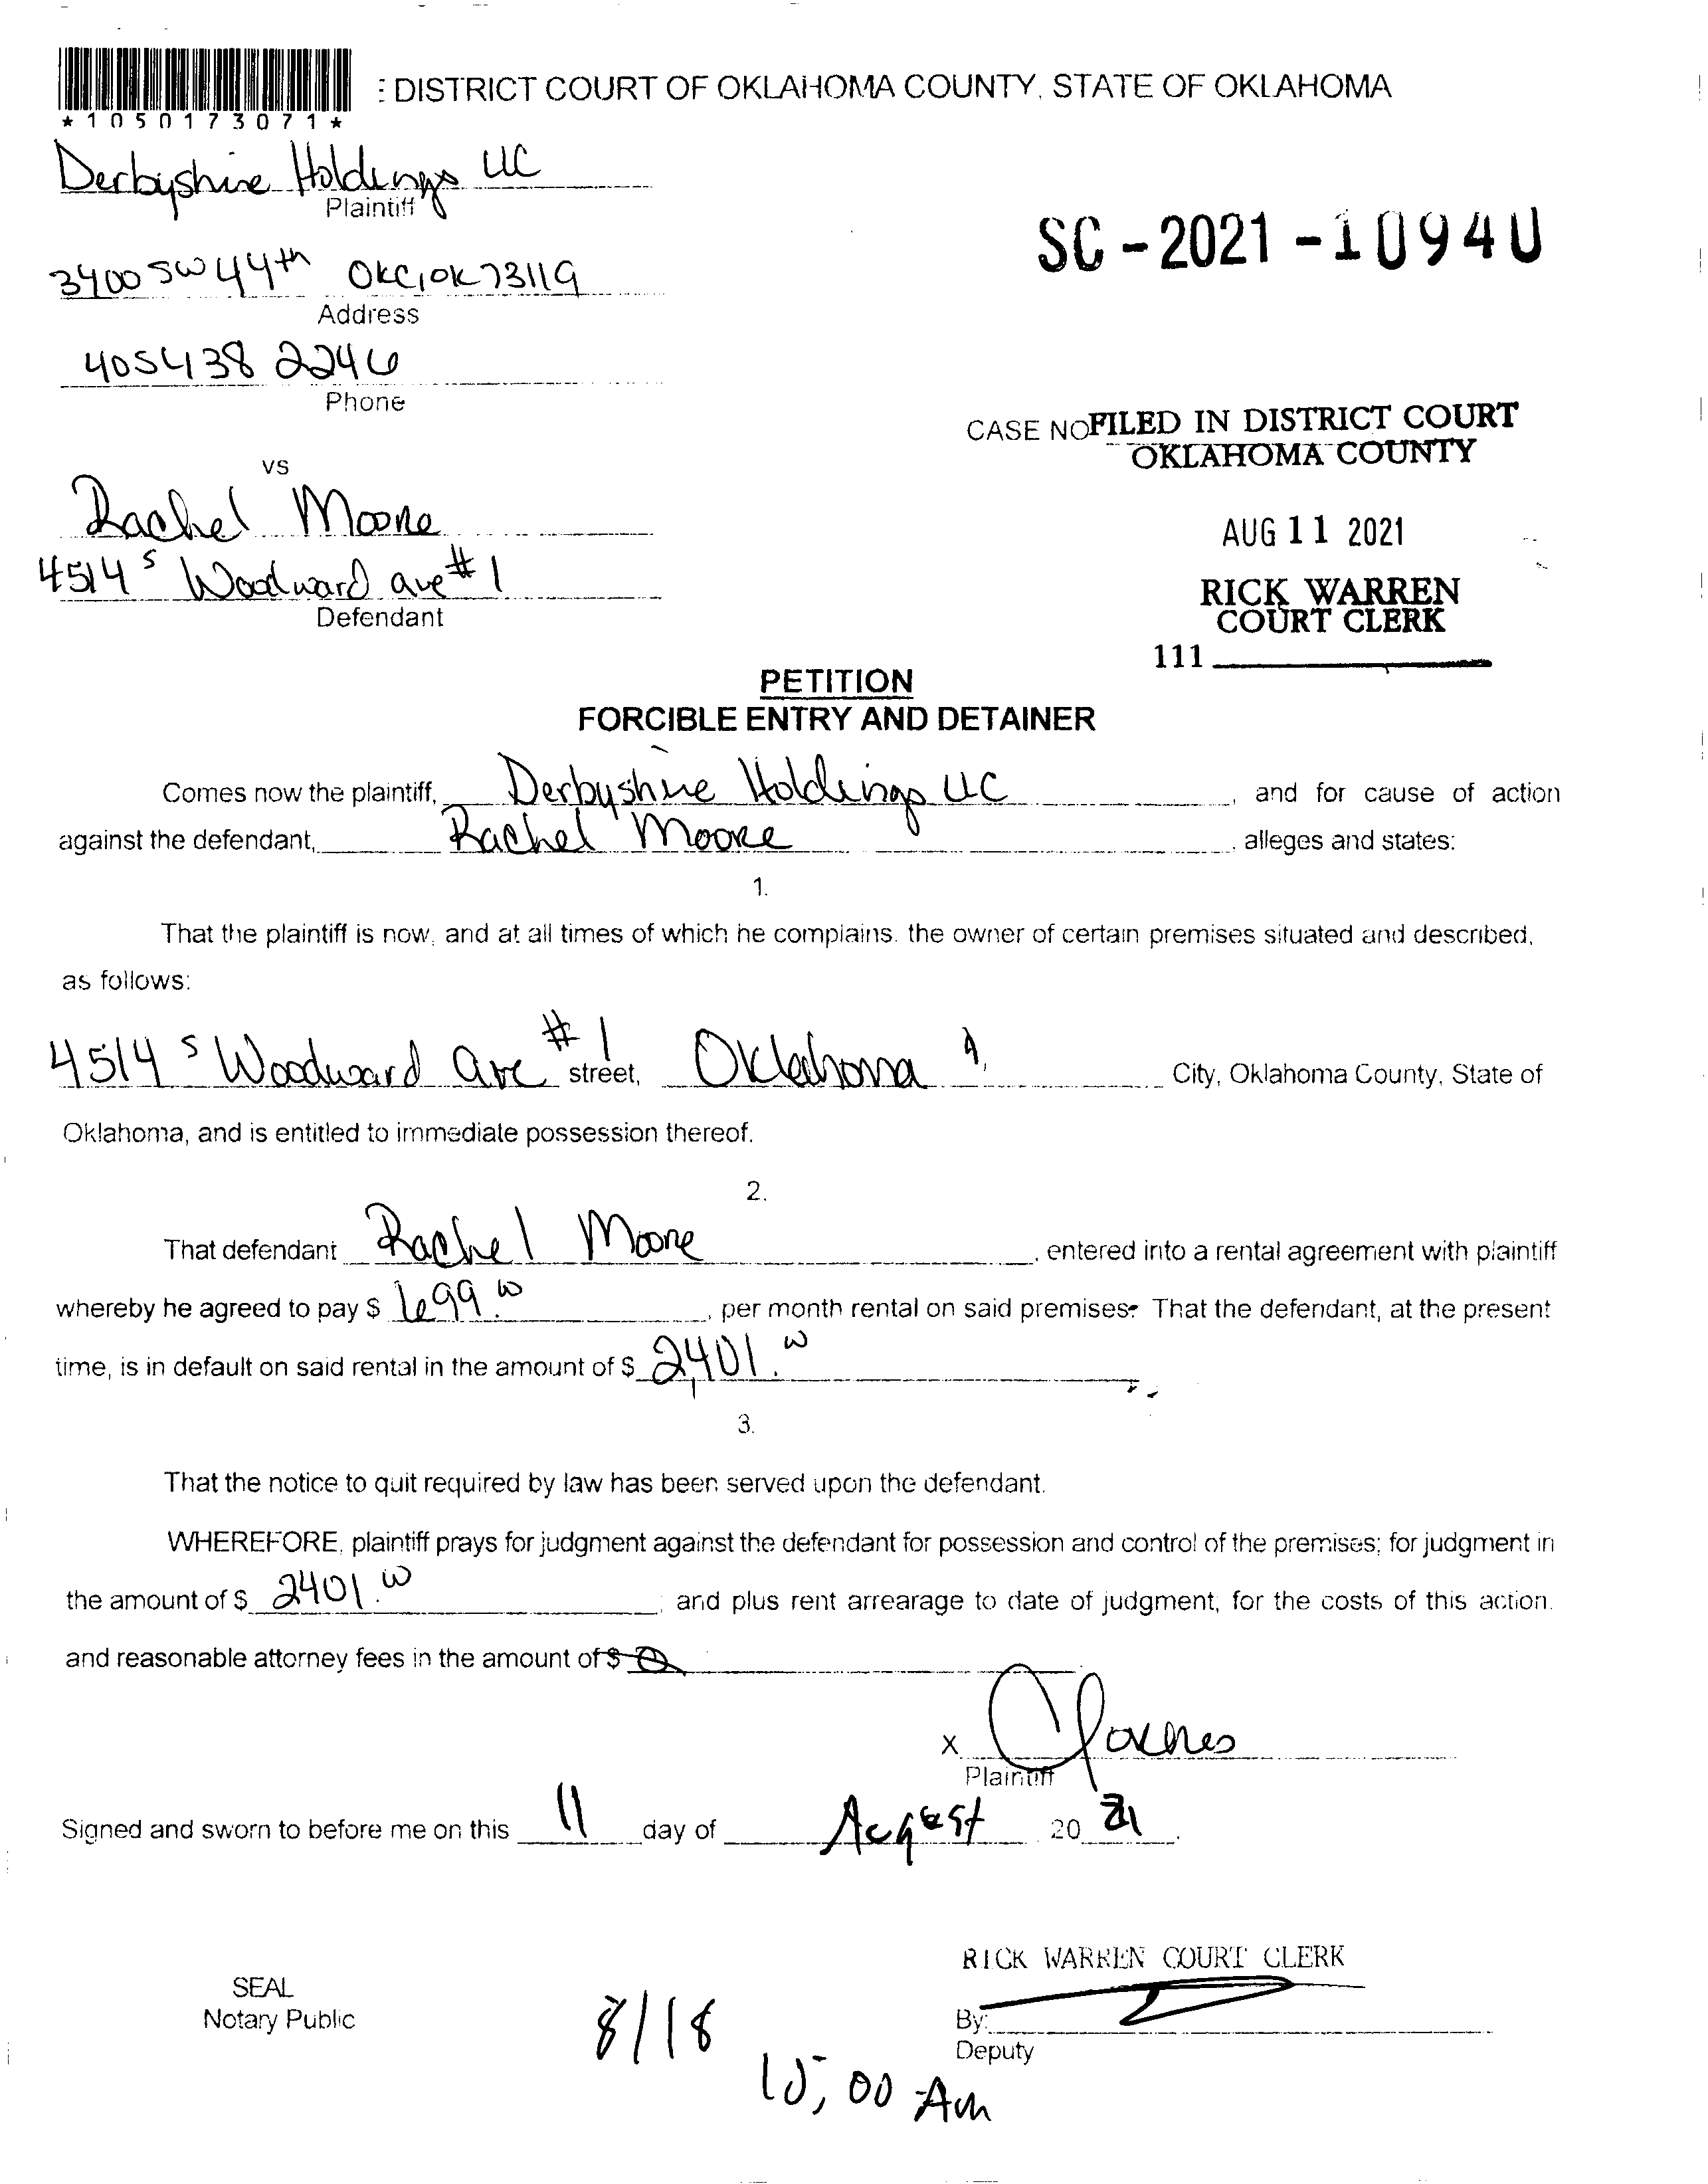 *1050173071*
DISTRICT COURT OF OKLAHOMA COUNTY, STATE OF OKLAHOMA
Derbyshire Holdings LLC
Plaintiff
SC-2021-10940
3400 SW 44th OKC, OK 73119
Address
405 438 2246
Phone
CASE NO
FILED IN DISTRICT COURT
OKLAHOMA COUNTY
vs
Rachel Moore
AUG 11 2021
4514 S Woodward ave #1
Defendant
RICK WARREN
COURT CLERK
111
PETITION
FORCIBLE ENTRY AND DETAINER
Comes now the plaintiff, Derbyshire Holdings LLC, and for cause of action
against the defendant, Rachel Moore, alleges and states:
1.
That the plaintiff is now, and at all times of which he complains, the owner of certain premises situated and described,
as follows:
4514 S Woodward Ave #1 street, Oklahoma City, Oklahoma County, State of
Oklahoma, and is entitled to immediate possession thereof.
2.
That defendant Rachel Moore, entered into a rental agreement with plaintiff
whereby he agreed to pay $ 699.00, per month rental on said premises. That the defendant, at the present
time, is in default on said rental in the amount of $ 2,401.00
3.
That the notice to quit required by law has been served upon the defendant.
WHEREFORE, plaintiff prays for judgment against the defendant for possession and control of the premises; for judgment in
the amount of $ 2401.00; and plus rent arrearage to date of judgment, for the costs of this action,
and reasonable attorney fees in the amount of $ 0
x
Plaintiff
Signed and sworn to before me on this 11 day of August 20 21.
RICK WARREN COURT CLERK
SEAL
Notary Public
By:
Deputy
8/18
10:00 Am